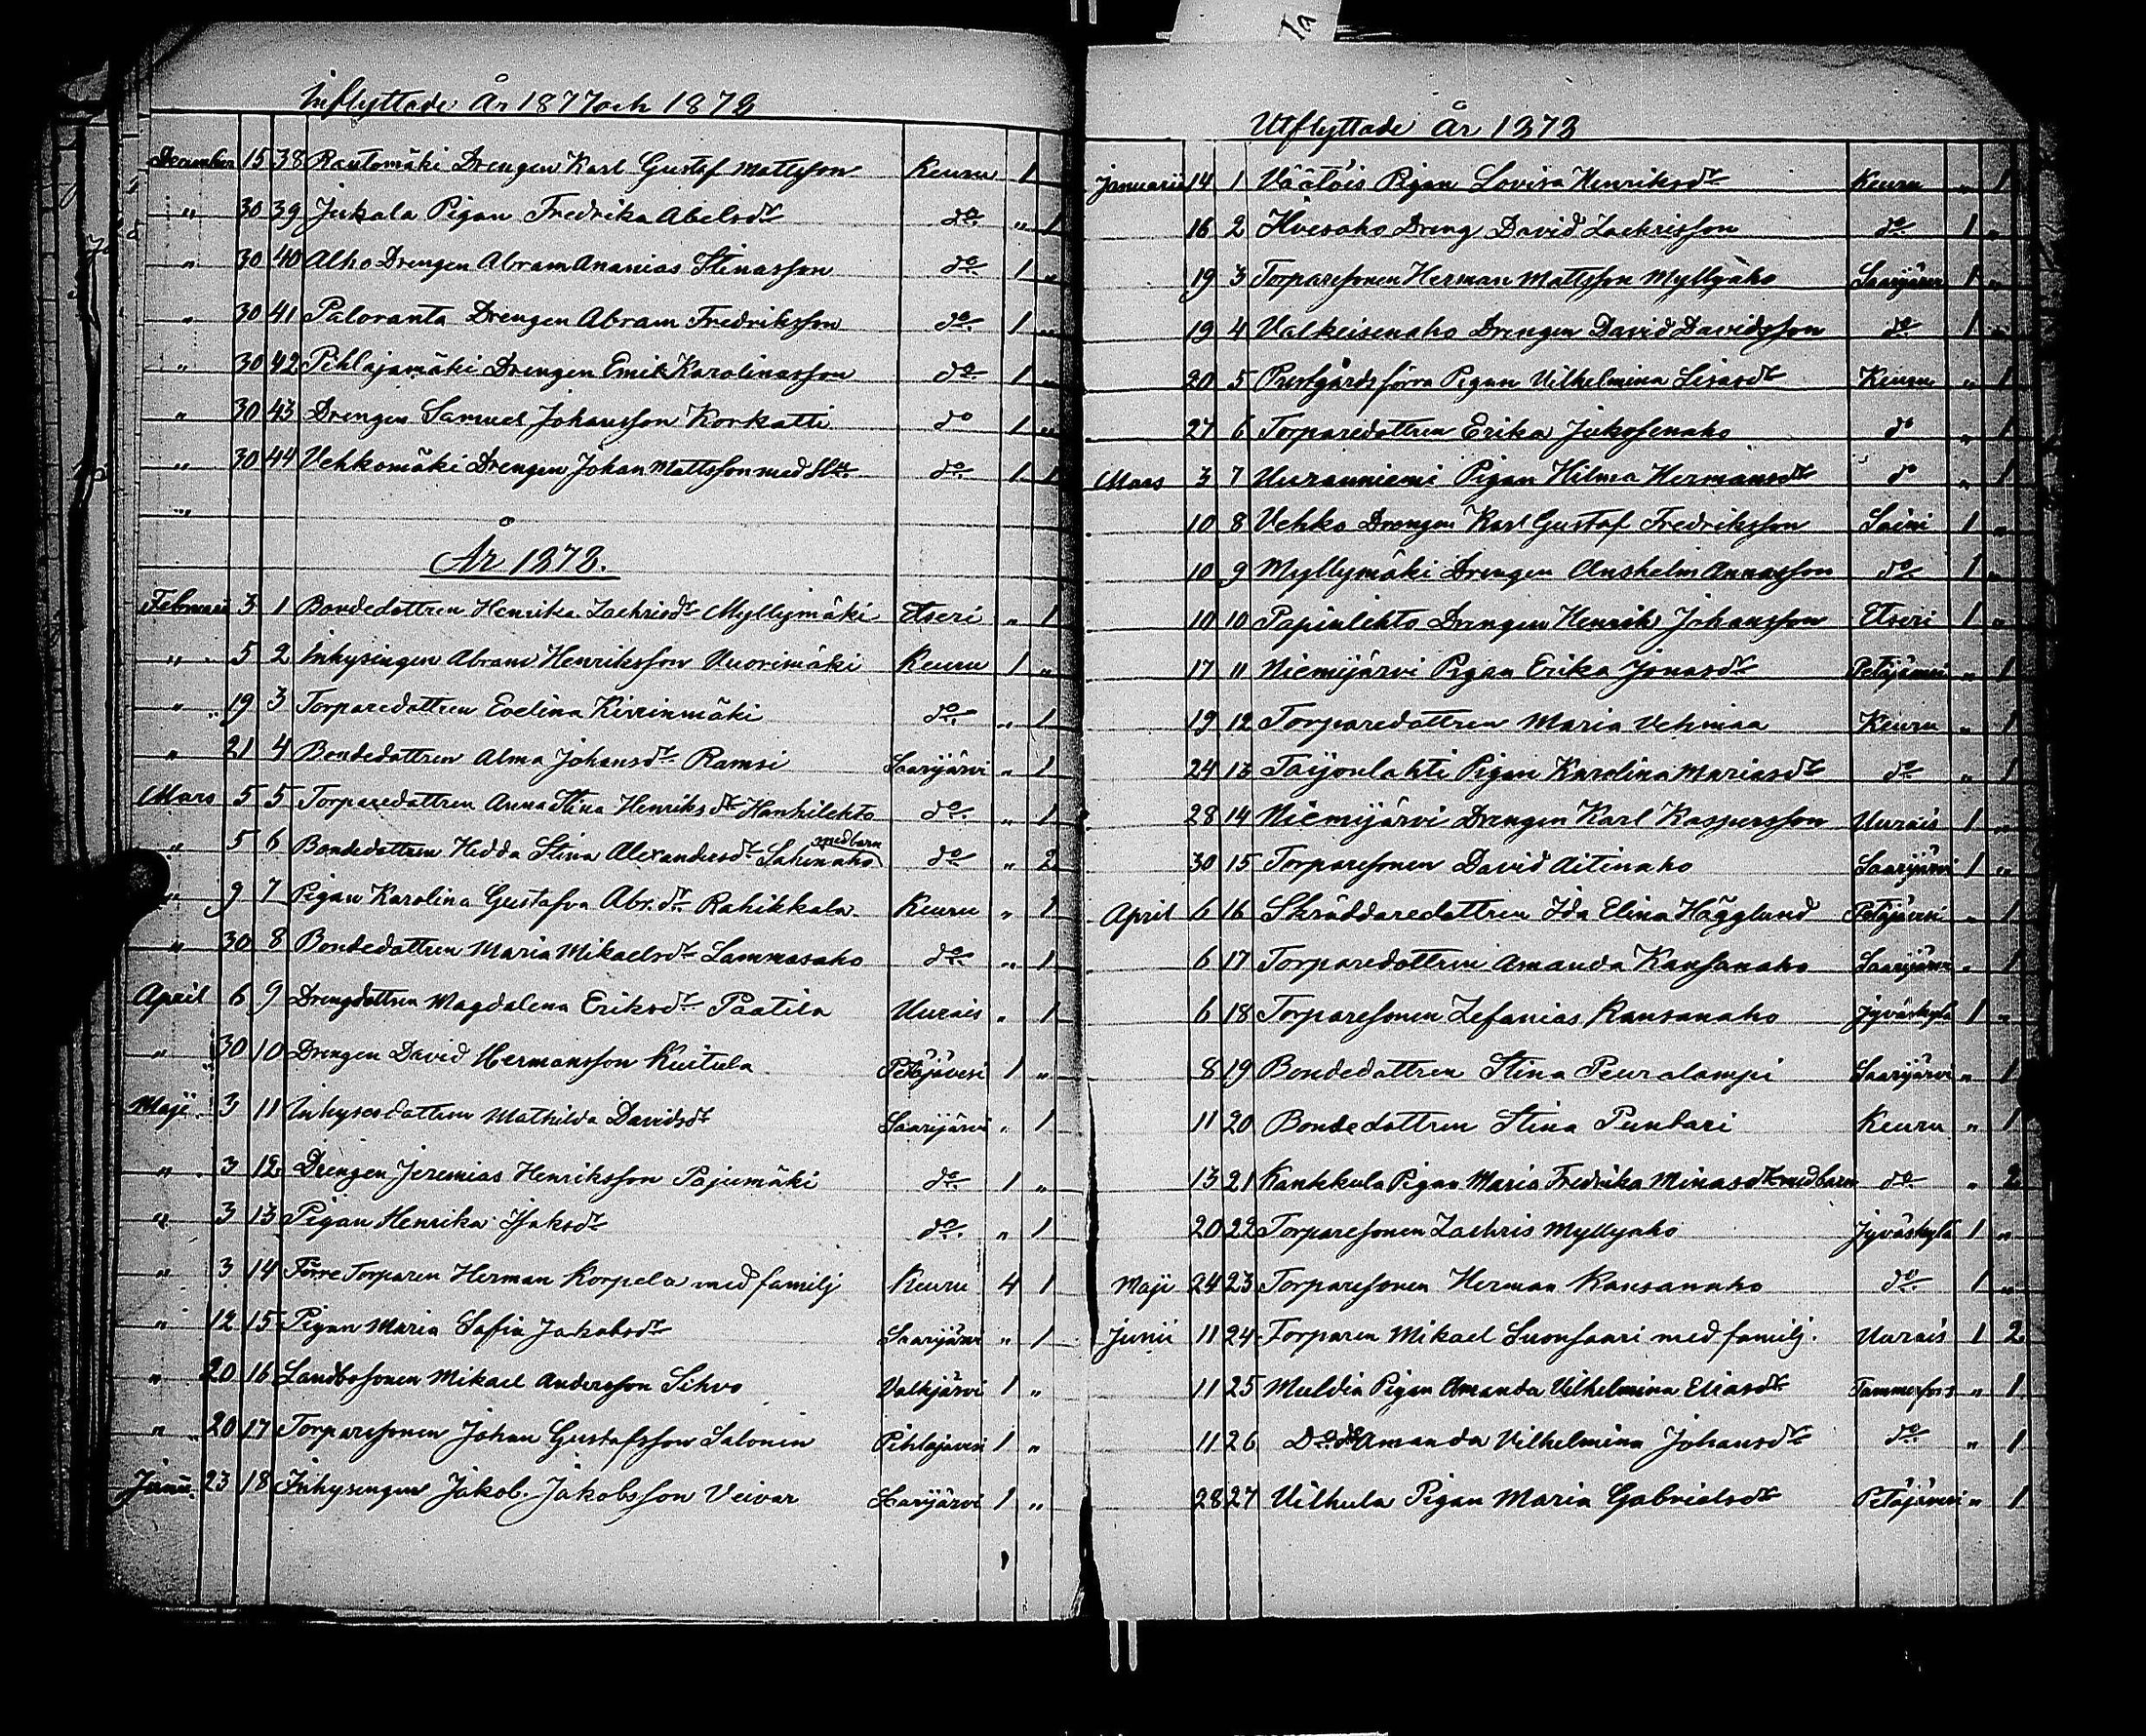 Inflyttade År 1877 och 1878
December 15 38 Rautomäki Drengen Karl Gustaf Mattsson Keuru 1
" 30 39 Jukala Pigan Fredrika Abelsdr do " 1
" 30 40 Alho Drengen Abram Ananias Stinasson do 1 "
" 30 41 Paloranta Drengen Abram Fredriksson do 1 "
" 30 42 Pihlajamäki Drengen Emil Karolinasson do 1 "
" 30 43 Drengen Samuel Johansson Korkatti do 1 "
" 30 44 Vehkomäki Drengen Johan Mattsson med Hu do 1 1
"
År 1878.
Februari 3 1 Bondedottren Henrika Zachrisdr Myllymäki Etseri " 1
" 5 2 Inhysingen Abram Henriksson Vuorimäki Keuru 1 "
" 19 3 Torparedottren Evelina Kivrinmäki do " 1
" 21 4 Bondedottren Alma Johansdr Ramsi Saarijärvi " 1
Mars 5 5 Torparedottren Anna Stina Henriksdr Hanhilehto do " 1
" 5 6 Bondedottren Hedda Stina Alexandersdr Sahinaho med barn do " 2
" 9 7 Pigan Karolina Gustafva Abr.dr Rahikkala Keuru " 1
" 30 8 Bondedottren Maria Mikaelsdr Lammasaho do " 1
April 6 9 Drengdottren Magdalena Eriksdr Paatila Uurais " 1
" 30 10 Drengen David Hermansson Kuitula Petäjävesi 1 "
Maji 3 11 Inhysesdottren Mathilda Davidsdr Saarijärvi " 1
" 3 12 Drengen Jeremias Henriksson Pajumäki do 1 "
" 3 13 Pigan Henrika Isaksdr do " 1
" 3 14 Förre Torparen Herman Korpela med familj Keuru 4 1
" 12 15 Pigan Maria Sofia Jakobsdr Saarijärvi " 1
" 20 16 Landbosonen Mikael Andersson Sihvo Valkjärvi 1 "
" 20 17 Torparesonen Johan Gustafsson Salonen Pihlajavesi 1 "
Junii 23 18 Inhysingen Jakob Jakobsson Veivar Saarijärvi 1 "
Utflyttade År 1878
Januarii 14 1 Väätöis Pigan Lovisa Henriksdr Keuru " 1
16 2 Hvesaho Dreng David Zachrisson do 1 "
19 3 Torparesonen Herman Mattsson Myllyaho Saarijärvi 1 "
19 4 Valkeisenaho Drengen David Davidsson do 1 "
20 5 Prestgårds förra Pigan Vilhelmina Lisasdr Keuru " 1
27 6 Torparedottren Erika Jukosenaho do " 1
Mars 3 7 Uurauniemi Pigan Hilma Hermansdr do " 1
10 8 Vehko Drengen Karl Gustaf Fredriksson Saini 1 "
10 9 Myllymäki Drengen Anshelm Annasson do 1 "
10 10 Papinlehto Drengen Henrik Johansson Etseri 1 "
17 11 Niemijärvi Pigan Erika Jonasdr Petäjävesi " 1
19 12 Torparedottren Maria Vehmaa Keuru " 1
24 13 Taijonlahti Pigan Karolina Mariasdr do " 1
28 14 Niemijärvi Drengen Karl Kaspersson Uurais 1 "
30 15 Torparesonen David Aitinaho Saarijärvi 1 "
April 6 16 Skräddaredottren Ida Elina Hägglund Petäjävesi " 1
6 17 Torparedottren Amanda Kansanaho Saarijärvi " 1
6 18 Torparesonen Zefanias Kansanaho Jyväskylä 1 "
8 19 Bondedottren Stina Peuralampi Saarijärvi " 1
11 20 Bondedottren Stina Puntari Keuru " 1
13 21 Kankkula Pigan Maria Fredrika Minasdr med barn do " 2
20 22 Torparesonen Zachris Myllyaho Jyväskylä 1 "
Maji 24 23 Torparesonen Herman Kansanaho do 1 "
Junii 11 24 Torparen Mikael Suonsaari med familj. Uurais 1 2
11 25 Muldia Pigan Amanda Vilhelmina Eliasdr Tammerfors " 1
11 26 Do do Amanda Vilhelmina Johansdr do " 1
28 27 Vilhula Pigan Maria Gabrielsdr Petäjävesi " 1